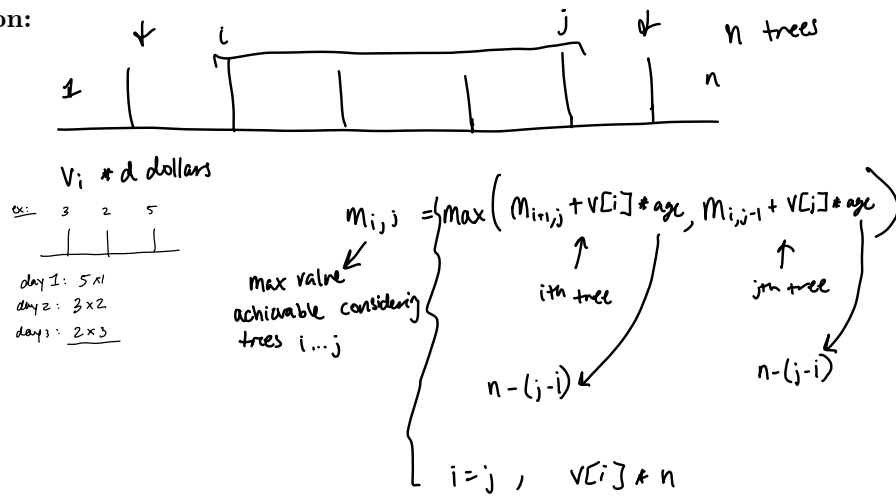 on:
i j n trees
1 n
Vi * d dollars
ex: 3 2 5
day 1: 5x1
day 2: 3x2
day 3: 2x3
mi,j = max( mi+1,j + v[i] * age, mi,j-1 + v[j] * age )
max value
achievable considering
trees i...j
ith tree
jth tree
n-(j-i)
n-(j-i)
i=j , v[i] * n